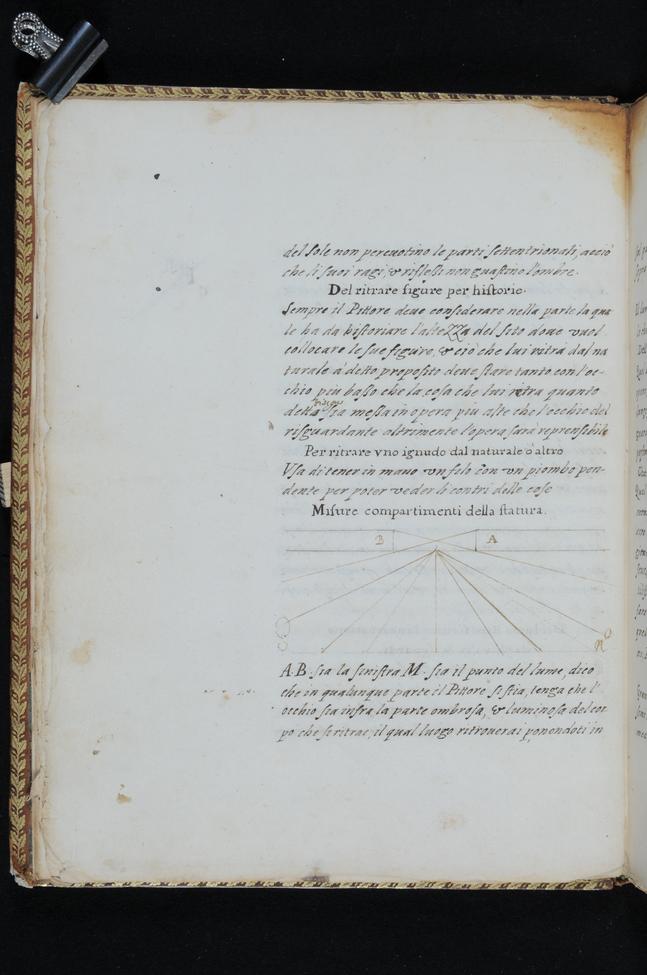 del sole non percuotino le parti settentrionali, acciò
che li suoi ragi, & riflessi non guastino l'ombre.
Del ritrare figure per historie.
Sempre il Pittore deue considerare nella parte la qua
le ha da historiare l'altezza del sito doue vuol
collocare le sue figure, & ciò che lui ritrà dal na
turale à detto proposito deue stare tanto con l'oc-
chio più basso che la cosa che lui ritra quanto
detta sia messa in opera più alte che l'occhio del
risguardante altrimente l'opera sarà reprensibile
Per ritrare vno ignudo dal naturale ò altro
Vsa di tener in mano vn filo con vn piombo pen-
dente per poter veder li contri delle cose
Misure compartimenti della statura.
B A
A.B. sia la finistra M. sia il punto del lume, dico
che in qualunque parte il Pittore si stia, tenga che l'
occhio sia infra la parte ombrosa, & luminosa del cor
po che si ritrae, il qual luogo ritrouerai ponendoti in